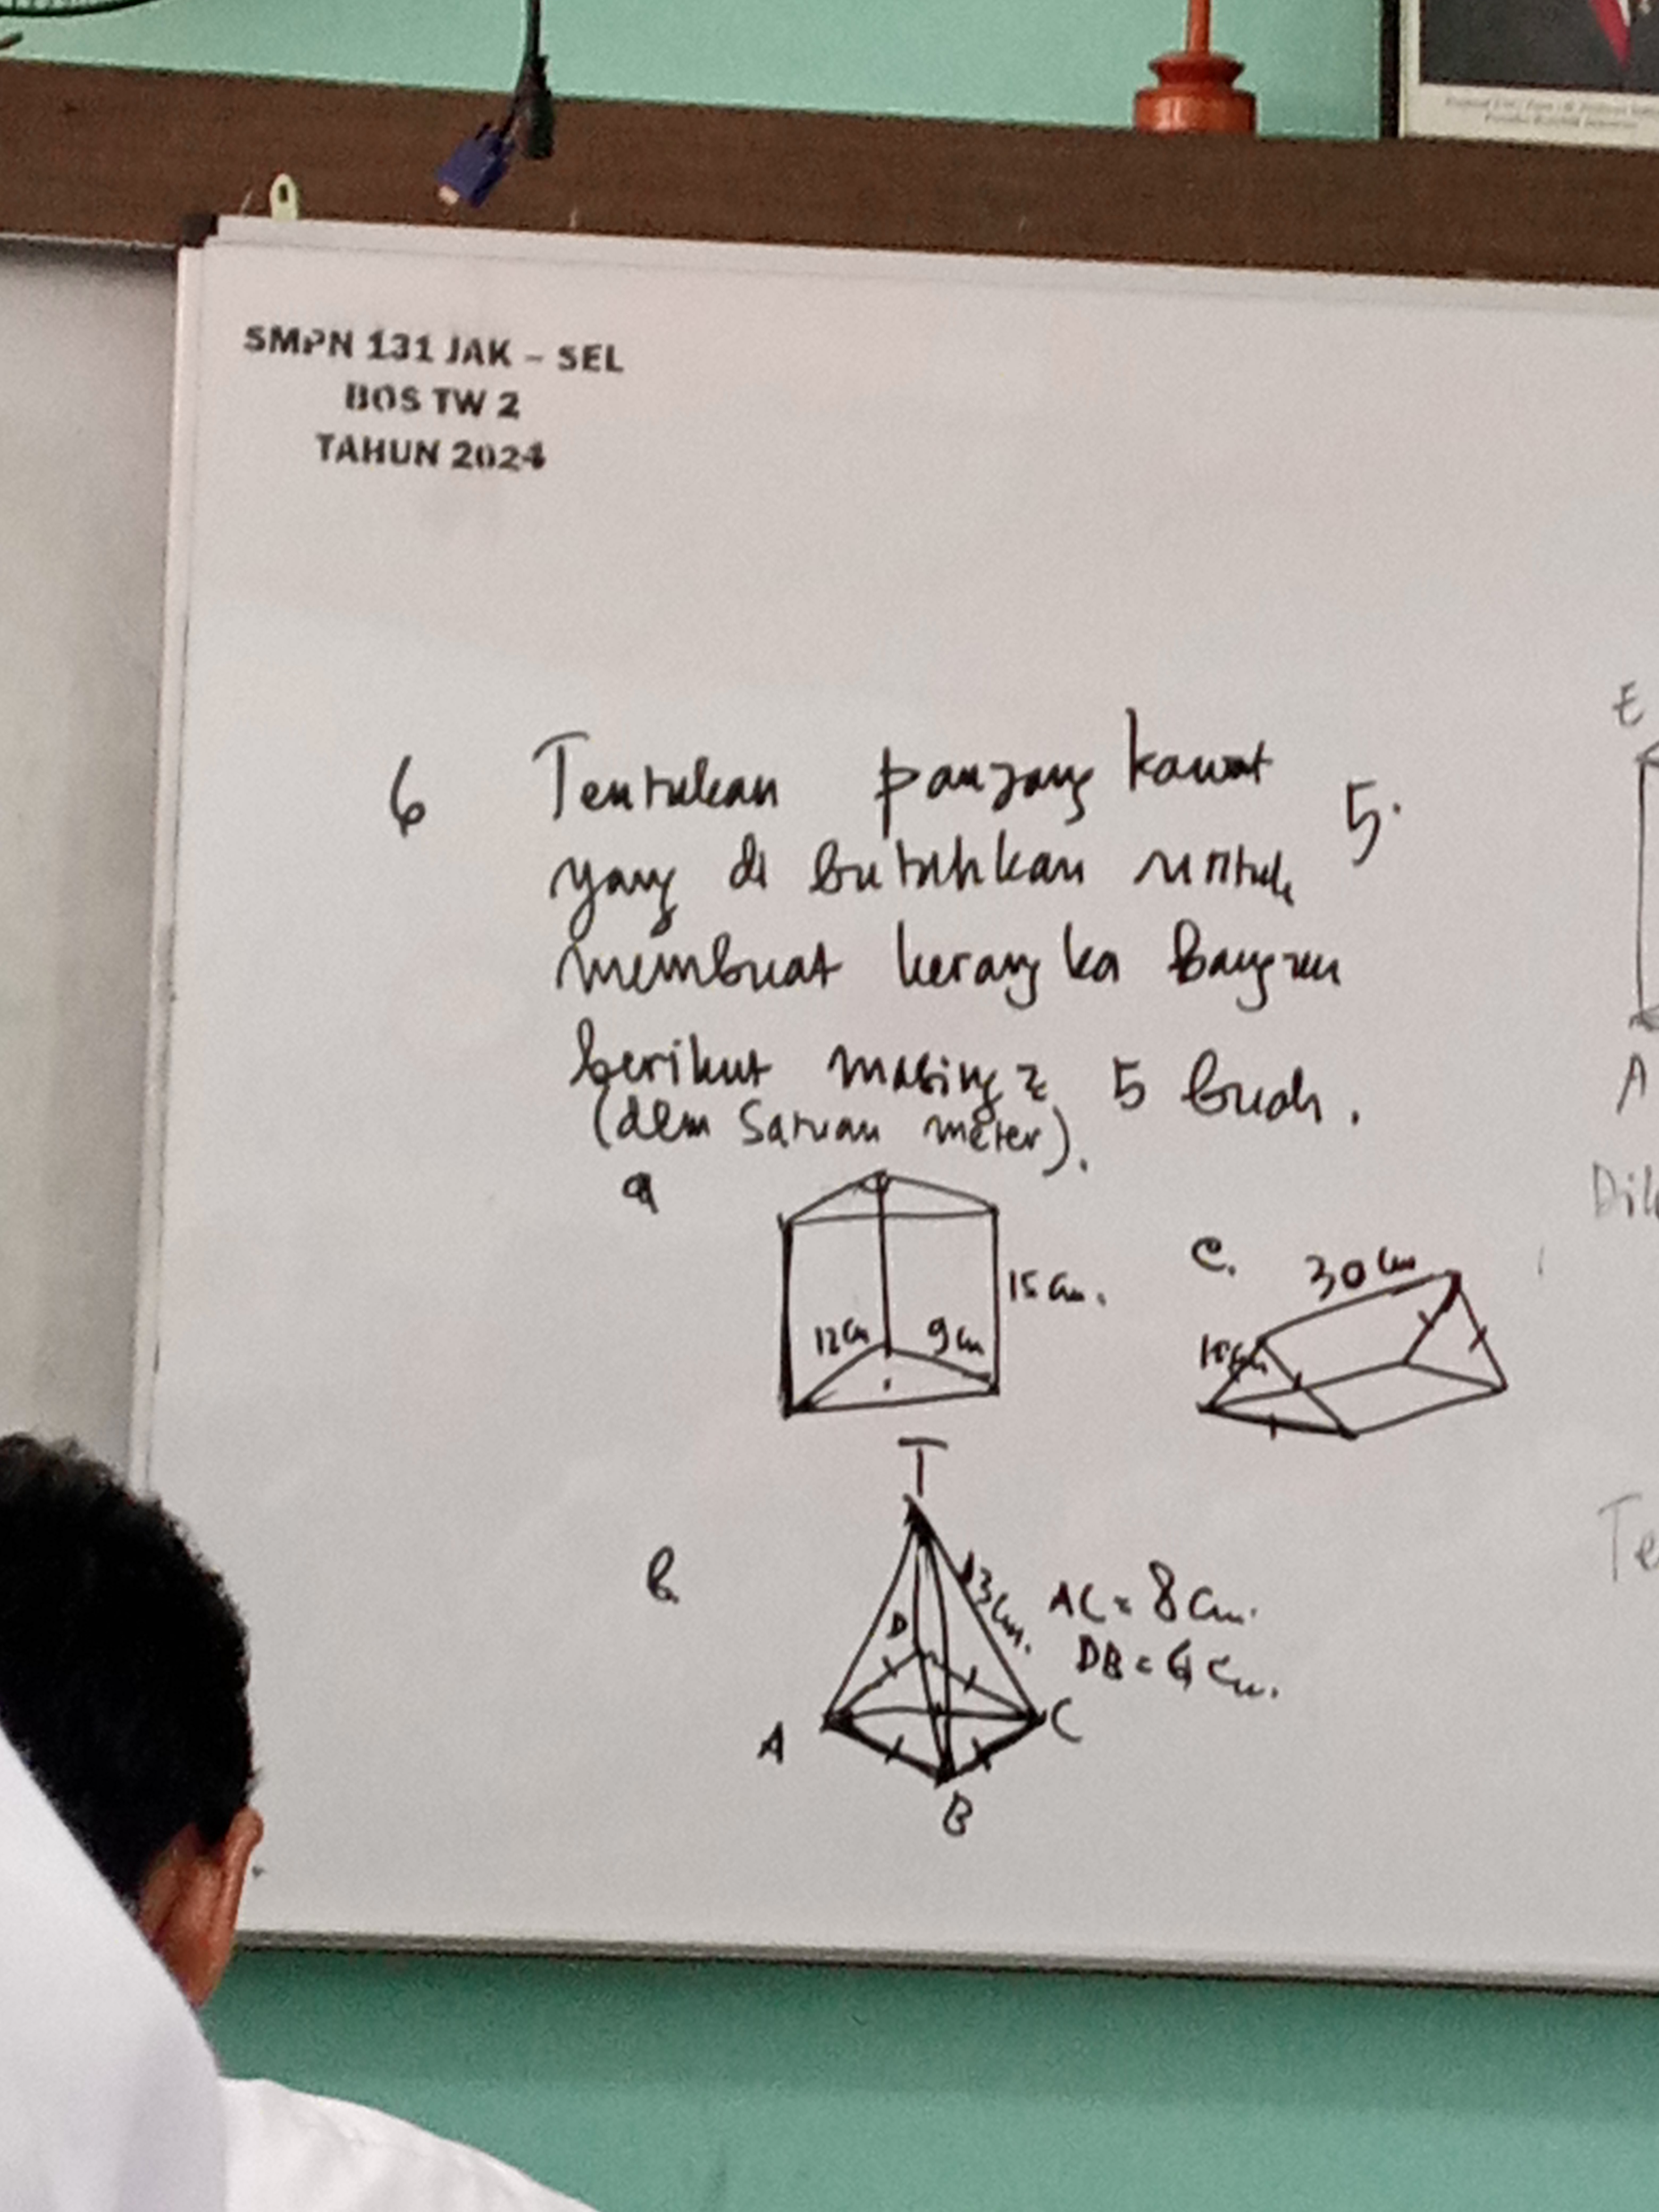 SMPN 131 JAK – SEL
BOS TW 2
TAHUN 2024
6 Tentukan panjang kawat
yang di butuhkan untuk
membuat kerangka Bangun
berikut masing2 5 buah.
(dlm Satuan meter).
a
12 cm
9 cm
15 cm.
c.
30 cm
b.
T
13 cm.
D
A
B
C
AC = 8 cm.
DB = 6 cm.
5.
E
A
Te